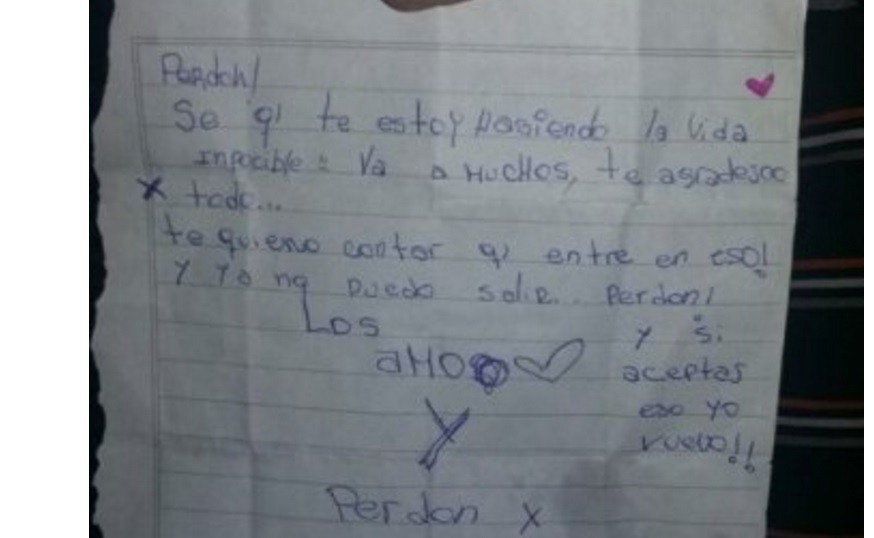 Perdon!
Se q' te estoy hasiendo la vida
inpocible: Va a muchos, te agradesco
x todo...
te quiero contar q' entre en eso!
y yo no puedo salir. Perdon!
Los
aMO
y si
aceptas
eso yo
vuelvo!!
y
Perdon x